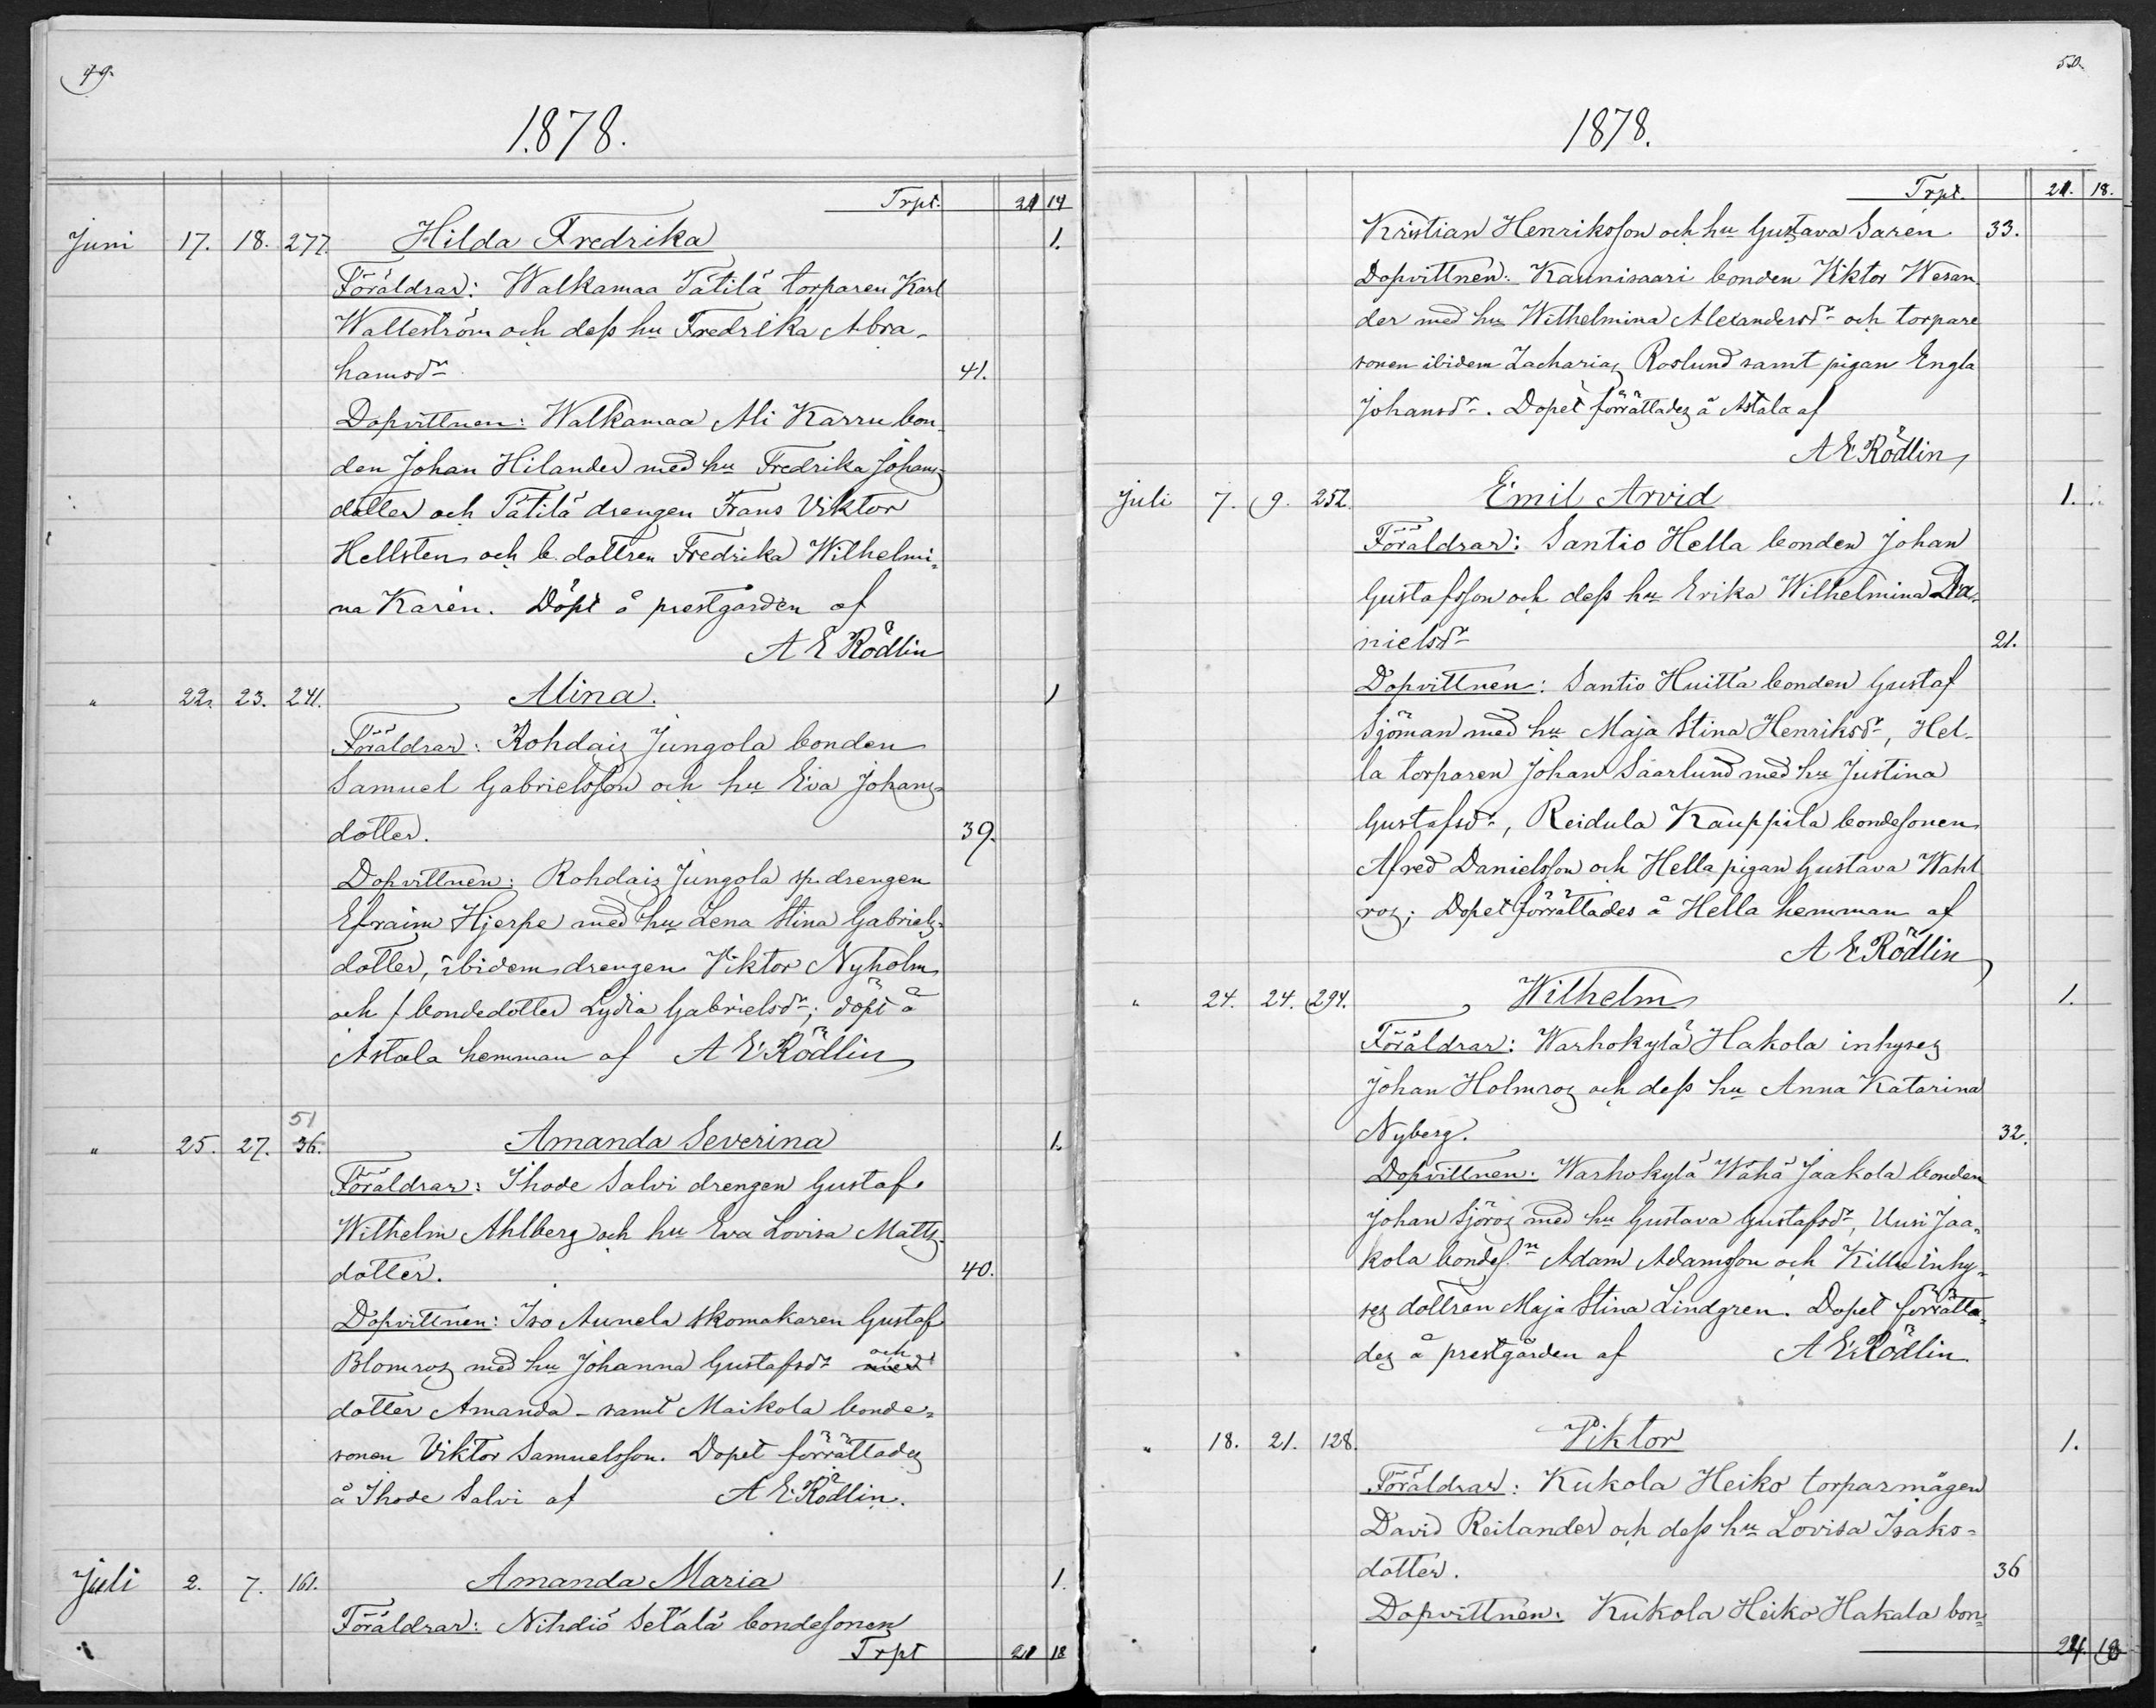 49.
1878.
Trpt. 21 14
Juni 17. 18. 277. Hilda Fredrika 1.
Föräldrar: Walkamaa Tätilä torparen Karl
Walleström och dess hu Fredrika Abra-
hamsdr 41.
Dopvittnen: Walkamaa Ali Karru bon-
den Johan Hilander med hu Fredrika Johans
dotter och Tätilä drengen Frans Viktor
Hellsten och b. dottren Fredrika Wilhelmi-
na Karén. Döpt å prestgården af
A E Rödlin
" 22. 23. 241. Alina. 1
Föräldrar: Rohdais Jungola bonden
Samuel Gabrielsson och hu Eva Johans-
dotter. 39.
Dopvittnen: Rohdais Jungola sp. drengen
Efraim Hjerpe med hu Lena Stina Gabriels-
dotter, ibidem drengen Viktor Nyholm
och f bondedotter Lydia Gabrielsdr; döpt å
Astala hemman af A E Rödlin
51
" 25. 27. 36. Amanda Severina 1.
Föräldrar: Ihode Salvi drengen Gustaf
Wilhelm Ahlberg och hu Eva Lovisa Matts-
dotter. 40.
Dopvittnen: Iso Aunela skomakaren Gustaf
Blomros med hu Johanna Gustafsdr med och
dotter Amanda - samt Maikola bonde-
sonen Viktor Samuelsson. Dopet förrättades
å Ihode Salvi af A E Rödlin.
Juli 2. 7. 161. Amanda Maria 1.
Föräldrar: Nihdiö Setälä bondesonen
Trpt 21 18
50.
1878.
Trpt. 21. 18.
Kristian Henriksson och hu Gustava Sarén 33.
Dopvittnen: Kaunisaari bonden Viktor Wesan
der med hu Wilhelmina Alexandersdr och torpare
sonen ibidem Zacharias Roslund samt pigan Engla
Johansdr. Dopet förrättades å Astala af
A E Rödlin
Juli 7. 9. 252. Emil Arvid 1.
Föräldrar: Santio Hella bonden Johan
Gustafsson och dess hu Erika Wilhelmina Da-
nielsdr 21.
Dopvittnen: Santio Huitta bonden Gustaf
Sjöman med hu Maja Stina Henriksdr, Hel-
la torparen Johan Saarlund med hu Justina
Gustafsdr, Reidula Kauppila bondesonen
Alfred Danielsson och Hella pigan Gustava Wahl
ros; Dopet förrättades å Hella hemman af
A E Rödlin
" 24. 24. 294. Wilhelm 1.
Föräldrar: Warhokylä Hakola inhyses
Johan Holmros och dess hu Anna Katarina
Nyberg. 32.
Dopvittnen: Warhokylä Wähä Jaakola bonden
Johan Sjöros med hu Gustava Gustafsdr, Uusi Jaa-
kola bondes.n Adam Adamsson och Killu inhy-
ses dottren Maja Stina Lindgren. Dopet förrätta-
des å prestgården af A E Rödlin
" 18. 21. 128. Viktor 1.
Föräldrar: Kukola Heiko torparmågen
David Reilander och dess hu Lovisa Isaks-
dotter. 36
Dopvittnen: Kukola Heiko Hakala bon-
24. 18